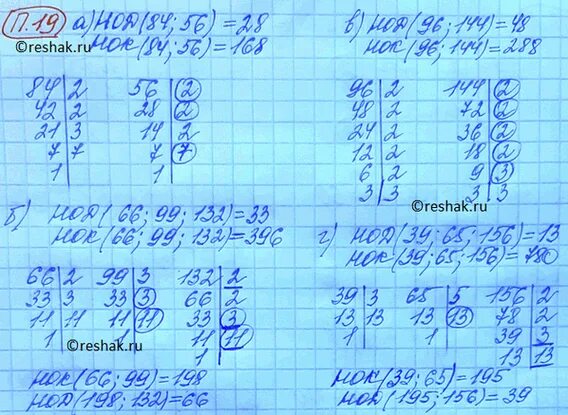 П.19 а) НОД(84; 56) = 28
НОК(84; 56) = 168
©reshak.ru
84 | 2 56 | 2
42 | 2 28 | 2
21 | 3 14 | 2
7 | 7 7 | 7
1 | 1 |
б) НОД(66; 99; 132) = 33
НОК(66; 99; 132) = 396
66 | 2 99 | 3 132 | 2
33 | 3 33 | 3 66 | 2
11 | 11 11 | 11 33 | 3
1 | 1 | 11 | 11
1 |
©reshak.ru
НОК(66; 99) = 198
НОД(198; 132) = 66
в) НОД(96; 144) = 48
НОК(96; 144) = 288
96 | 2 144 | 2
48 | 2 72 | 2
24 | 2 36 | 2
12 | 2 18 | 2
6 | 2 9 | 3
3 | 3 3 | 3
©reshak.ru
г) НОД(39; 65; 156) = 13
НОК(39; 65; 156) = 780
39 | 3 65 | 5 156 | 2
13 | 13 13 | 13 78 | 2
1 | 1 | 39 | 3
13 | 13
©reshak.ru
НОК(39; 65) = 195
НОД(195; 156) = 39